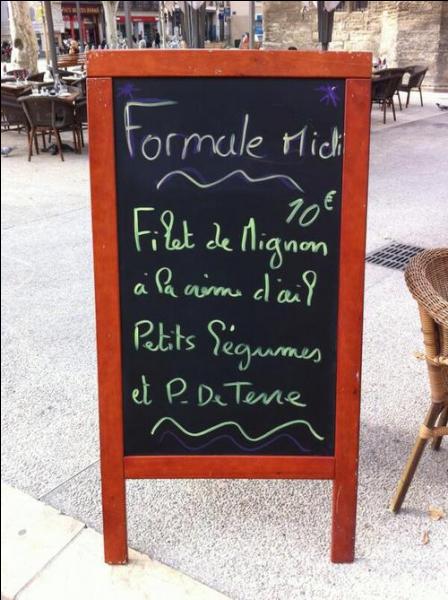 Formule Midi
10€
Filet de Mignon
à la crème d'ail
Petits légumes
et P. De Terre